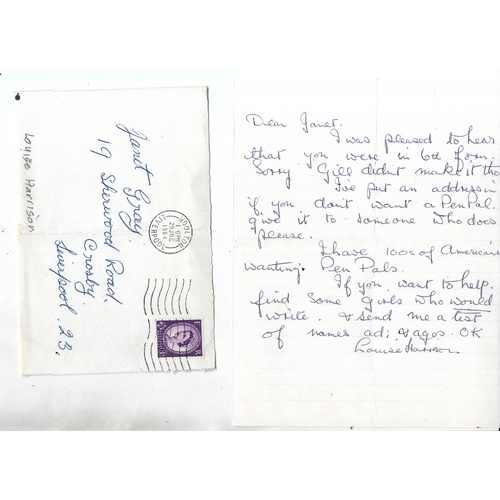 Louise Harrison
Janet Gray.
19 Sherwood Road.
Crosby.
Liverpool. 23.
LIVERPOOL
1 PM
29 JNE
1964
Dear Janet.
I was pleased to hear
that you were in 6th form.
Sorry Gill didn't make it tho
I've put an address in
if you don't want a Pen Pal.
give it to someone who does
please.
I have 100s of Americans
wanting Pen Pals.
If you want to help.
find some girls who would
write. & send me a list
of names ad; & ages. OK
Louise Harrison.